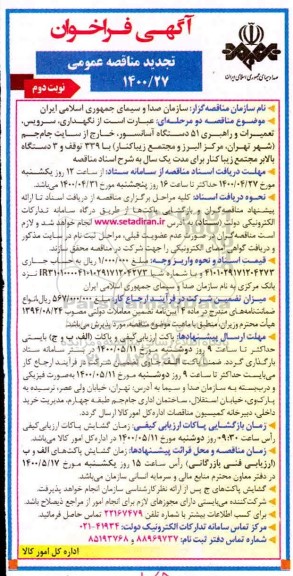 آگهی فراخوان
تجدید مناقصه عمومی
۱۴۰۰/۲۷
نوبت دوم
صدا و سیمای جمهوری اسلامی ایران
نام سازمان مناقصه‌گزار: سازمان صدا و سیمای جمهوری اسلامی ایران
موضوع مناقصه دو مرحله‌ای: عبارت است از نگهداری، سرویس،
تعمیرات و راهبری ۵۱ دستگاه آسانسور، خارج از سایت جام‌جم
(شهر تهران، مرکز البرز و مجتمع زیباکنار) با ۳۳۹ توقف و ۳ دستگاه
بالابر مجتمع زیبا کنار برای مدت یک سال به شرح اسناد مناقصه
مهلت دریافت اسناد مناقصه از سامانه ستاد: از ساعت ۱۲ روز یکشنبه
مورخ ۱۴۰۰/۰۴/۲۷ حداکثر تا ساعت ۱۶ روز پنجشنبه مورخ ۱۴۰۰/۰۴/۳۱ می‌باشد.
نحوه دریافت اسناد: کلیه مراحل برگزاری مناقصه از دریافت اسناد تا ارائه
پیشنهاد مناقصه‌گران و بازگشایی پاکت‌ها از طریق درگاه سامانه تدارکات
الکترونیکی دولت (ستاد) به آدرس www.setadiran.ir انجام خواهد شد و لازم
است مناقصه‌گران در صورت عدم عضویت قبلی، مراحل ثبت نام در سایت مذکور
و دریافت گواهی امضای الکترونیکی را جهت شرکت در مناقصه محقق سازند.
قیمت اسناد و نحوه واریز وجه: مبلغ ۱/۰۰۰/۰۰۰ ریال به حساب جاری
بانک مرکزی به نام سازمان صدا و سیمای جمهوری اسلامی ایران
میزان تضمین شرکت در فرآیند ارجاع کار: مبلغ ۵۶۷/۰۰۰/۰۰۰ ریال انواع
ضمانت‌نامه‌های مندرج در ماده ۴ آیین‌نامه تضمین معاملات دولتی مصوب ۱۳۹۴/۰۸/۲۴
هیأت محترم وزیران، منطبق با ماهیت موضوع مناقصه، مورد پذیرش می‌باشد.
مهلت ارسال پیشنهادها: پاکات ارزیابی کیفی و پاکات (الف، ب و ج) بایستی
حداکثر تا ساعت ۹ روز دوشنبه مورخ ۱۴۰۰/۰۵/۱۱ در بستر سامانه ستاد
بارگذاری گردد. ضمناً پاکت الف حاوی تضمین شرکت در فرآیند ارجاع کار
می‌بایست حداکثر تا ساعت ۹ روز دوشنبه مورخ ۱۴۰۰/۰۵/۱۱ به‌صورت فیزیکی
و دربسته به سازمان صدا و سیما به آدرس: تهران، خیابان ولی عصر، نرسیده به
پارک‌وی، خیابان استقلال، ساختمان اداری جام‌جم، طبقه چهارم، مدیریت خرید
داخلی، دبیرخانه کمیسیون مناقصات اداره‌کل امور کالا ارسال گردد.
زمان بازگشایی پاکات ارزیابی کیفی: زمان گشایش پاکات ارزیابی کیفی
رأس ساعت ۰۹:۳۰ روز دوشنبه مورخ ۱۴۰۰/۰۵/۱۱ در اداره‌کل امور کالا می‌باشد.
زمان مناقصه و محل قرائت پیشنهادها: زمان گشایش پاکت‌های الف و ب
(ارزیابی فنی بازرگانی) رأس ساعت ۱۵ روز یکشنبه مورخ ۱۴۰۰/۰۵/۱۷
در دفتر معاون محترم منابع مالی و سرمایه انسانی سازمان می‌باشد.
گشایش پاکت‌های ج پس از ارائه نظر کارشناسی سازمان انجام خواهد پذیرفت.
شرکت‌کننده می‌بایستی دارای مجوزهای لازم برای انجام امور از مراجع ذیصلاح باشد.
برای کسب اطلاعات بیشتر با شماره تلفن ۲۲۱۶۷۴۷۹ تماس حاصل فرمائید.
مرکز تماس سامانه تدارکات الکترونیک دولت: ۴۱۹۳۴-۰۲۱
شماره تماس دفتر ثبت نام: ۸۸۹۶۹۷۳۷ و ۸۵۱۹۳۷۶۸
اداره کل امور کالا